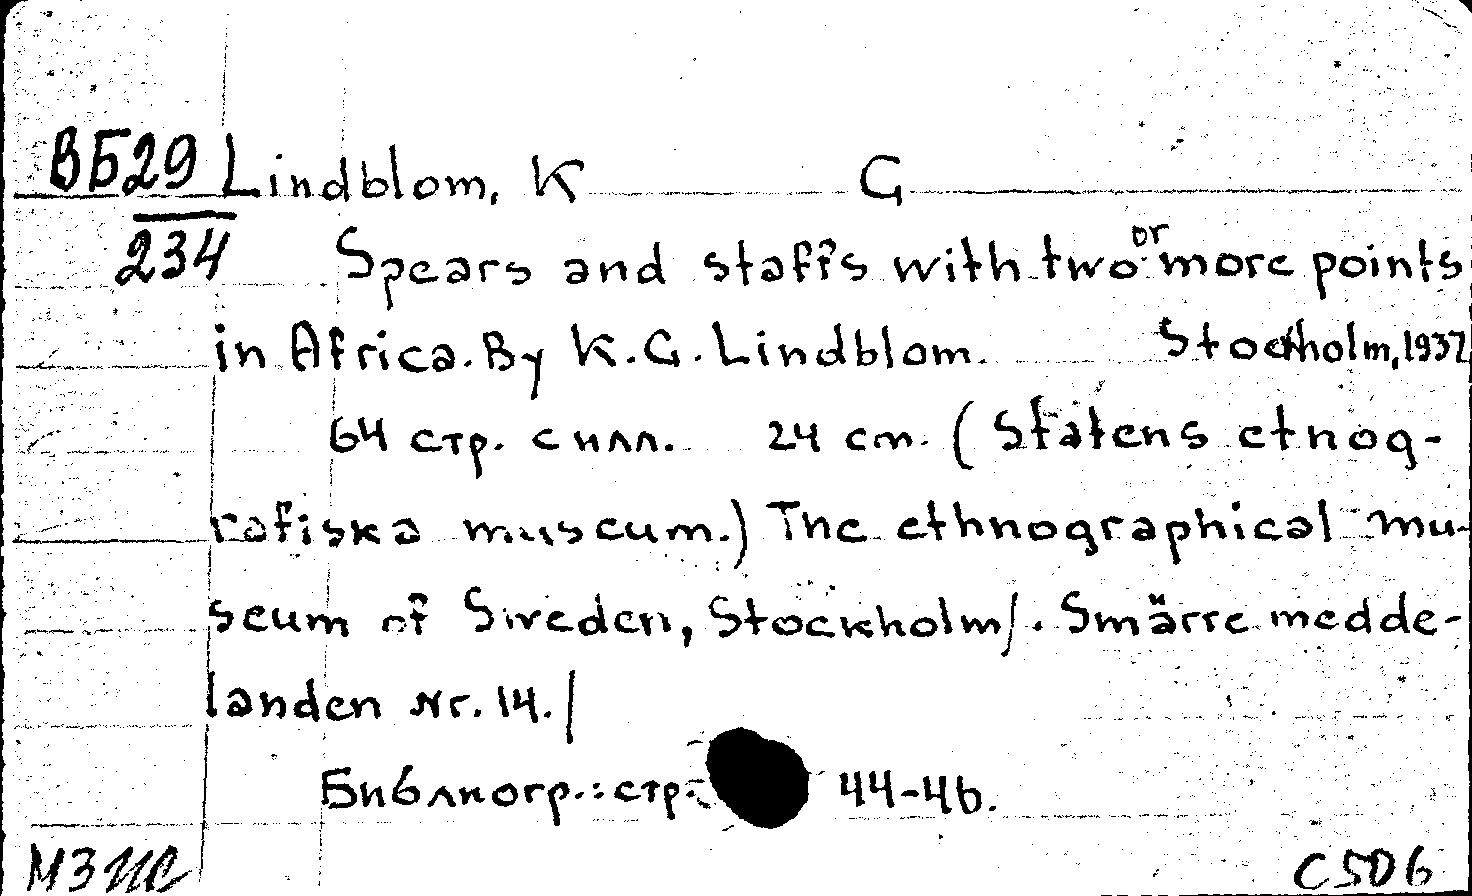 ВБ29 Lindblom, K G
234 Spears and staffs with two or more points
in Africa. By K.G. Lindblom. Stockholm, 1937
64 стр. с илл. 24 cm. (Statens etnog-
rafiska museum.) The ethnographical mu-
seum of Sweden, Stockholm/. Smärre medde-
landen Nr. 14./
Библиогр.: стр. 44-46.
С506